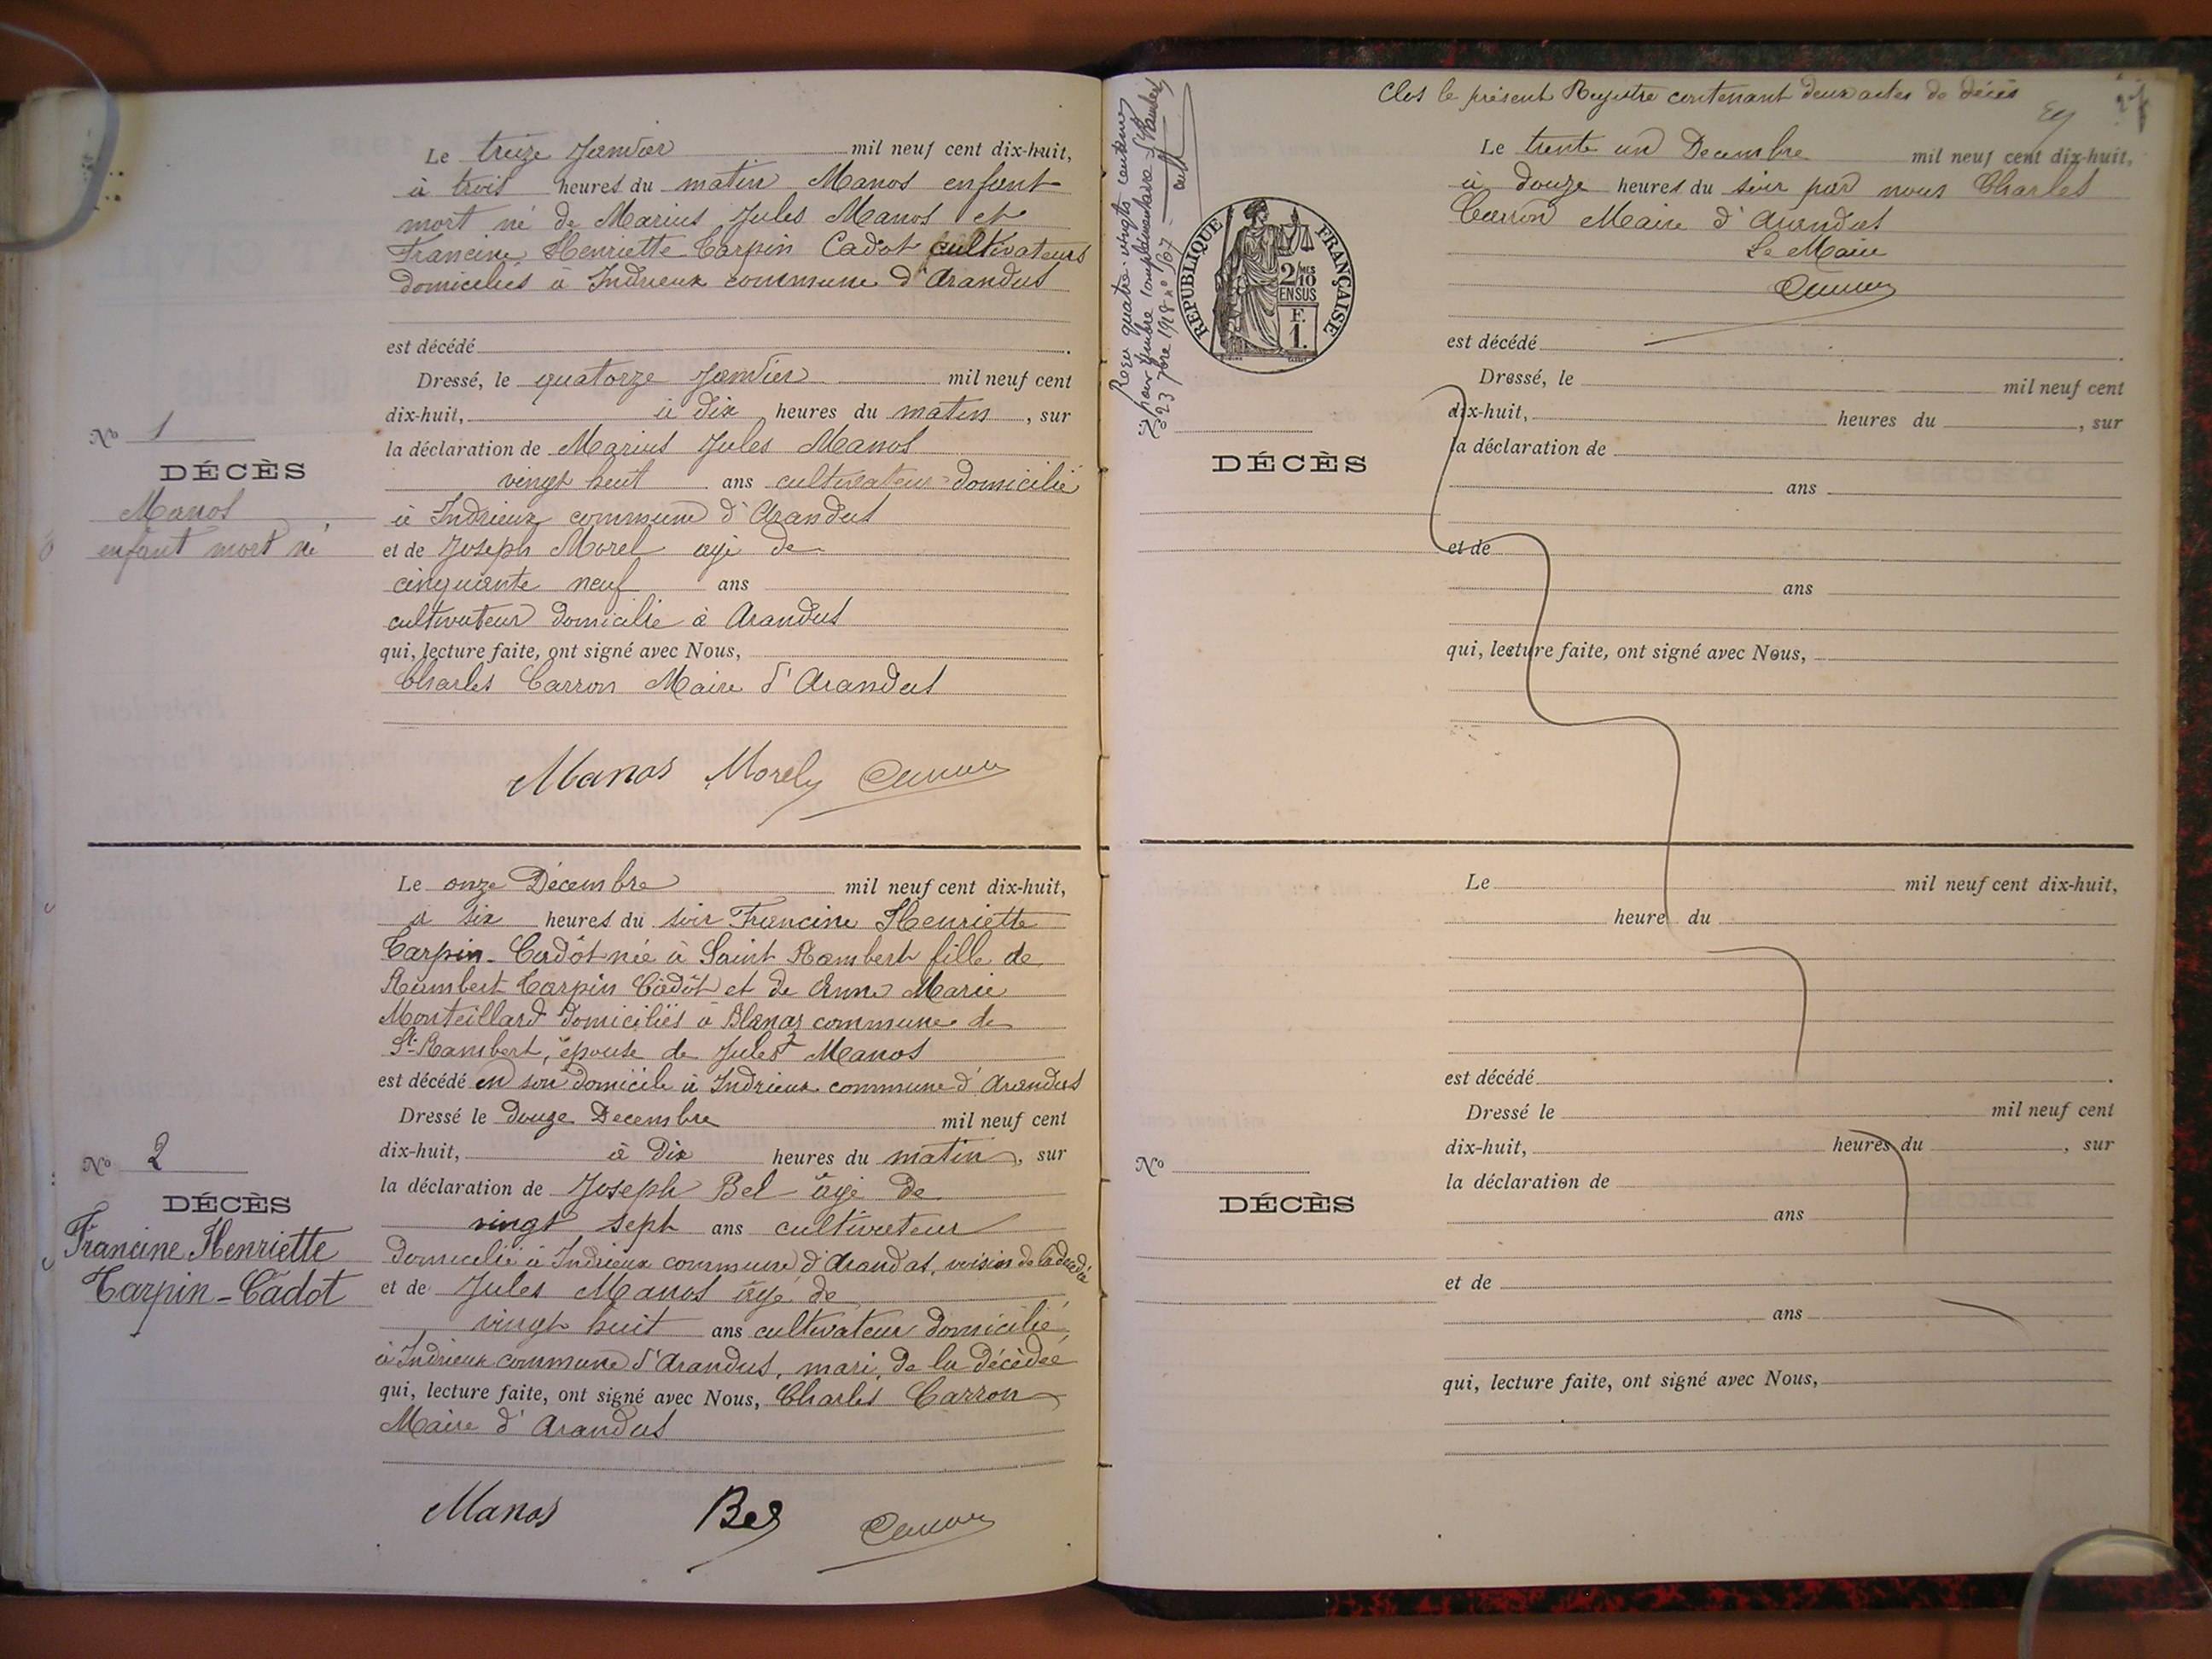 Le treize Janvier mil neuf cent dix-huit,
à trois heures du matin Manos enfant
mort né de Marius Jules Manos et
Francine Henriette Carpin Cadot cultivateurs
domiciliés à Indrieux commune d'Arandas
est décédé
Dressé, le quatorze Janvier mil neuf cent
dix-huit, à dix heures du matin, sur
la déclaration de Marius Jules Manos
vingt huit ans cultivateur domicilié
à Indrieux commune d'Arandas
et de Joseph Morel agé de
cinquante neuf ans
cultivateur domicilié à Arandas
qui, lecture faite, ont signé avec Nous,
Charles Carron Maire d'Arandas
Manos Morel
No 1
DÉCÈS
Manos
enfant mort né
Le onze Décembre mil neuf cent dix-huit,
à six heures du soir Francine Henriette
Carpin-Cadot née à Saint Rambert fille de
Rambert Carpin Cadot et de Anne Marie
Monteillard domiciliés à Blanaz commune de
St-Rambert, épouse de Jules Manos
est décédé en son domicile à Indrieux commune d'Arandas
Dressé le douze Decembre mil neuf cent
dix-huit, à dix heures du matin, sur
la déclaration de Joseph Bel âgé de
vingt sept ans cultivateur
domicilié à Indrieux commune d'Arandas, voisin de la décédée
et de Jules Manos âgé de
vingt huit ans cultivateur domicilié
à Indrieux commune d'Arandas, mari de la décédée
qui, lecture faite, ont signé avec Nous, Charles Carron
Maire d'Arandas
Manos Bel
No 2
DÉCÈS
Francine Henriette
Carpin-Cadot
Clos le présent Registre contenant deux actes de décès
Le trente un Decembre mil neuf cent dix-huit,
à douze heures du soir par nous Charles
Carron Maire d'Arandas
Le Maire
est décédé
Dressé, le mil neuf cent
dix-huit, heures du , sur
la déclaration de
ans
et de
ans
qui, lecture faite, ont signé avec Nous,
Reçu quatre-vingts centimes
pour timbre complémentaire
23 7bre 1918 no 567
RÉPUBLIQUE FRANÇAISE
2/10 MES
EN SUS
F.
1.
DÉCÈS
Le mil neuf cent dix-huit,
heure du
est décédé
Dressé le mil neuf cent
dix-huit, heures du , sur
la déclaration de
ans
et de
ans
qui, lecture faite, ont signé avec Nous,
No
DÉCÈS